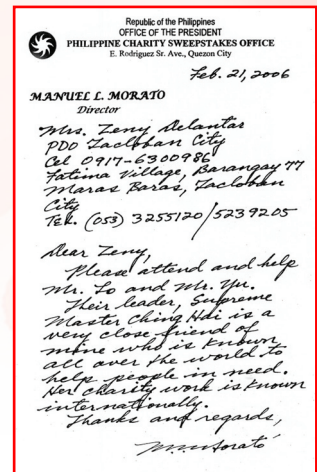 Republic of the Philippines
OFFICE OF THE PRESIDENT
PHILIPPINE CHARITY SWEEPSTAKES OFFICE
E. Rodriguez Sr. Ave., Quezon City
Feb. 21, 2006
MANUEL L. MORATO
Director
Mrs. Zeny Delantar
PDO Tacloban City
Cel 0917-6300986
Fatima Village, Barangay 77
Maras Baras, Tacloban
City
Tel. (053) 3255120/5239205
Dear Zeny,
Please attend and help
Mr. Lo and Mr. Yu.
Their leader, Supreme
Master Ching Hai is a
very close friend of
mine who is known
all over the world to
help people in need.
Her charity work is known
internationally.
Thanks and regards,
MMorato